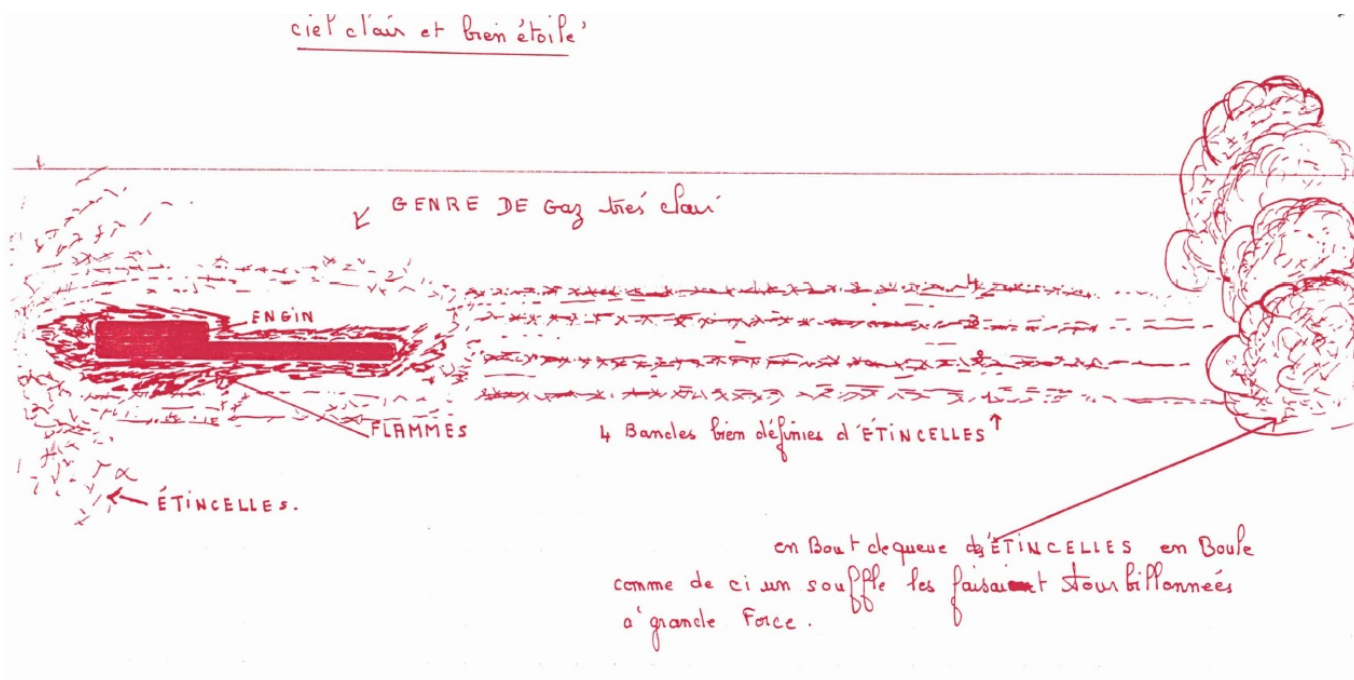 ciel clair et bien étoilé
GENRE DE Gaz très clair
ENGIN
4
3
2
1
FLAMMES
4 Bandes bien définies d'ÉTINCELLES
ÉTINCELLES.
en Bout de queue des ÉTINCELLES en Boule
comme de ci un souffle les faisaient tourbillonneés
a' grande Force.